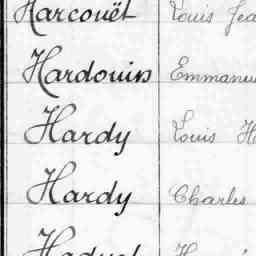 Harcouët Louis Jea
Hardouin Emmanu
Hardy Louis H
Hardy Charles